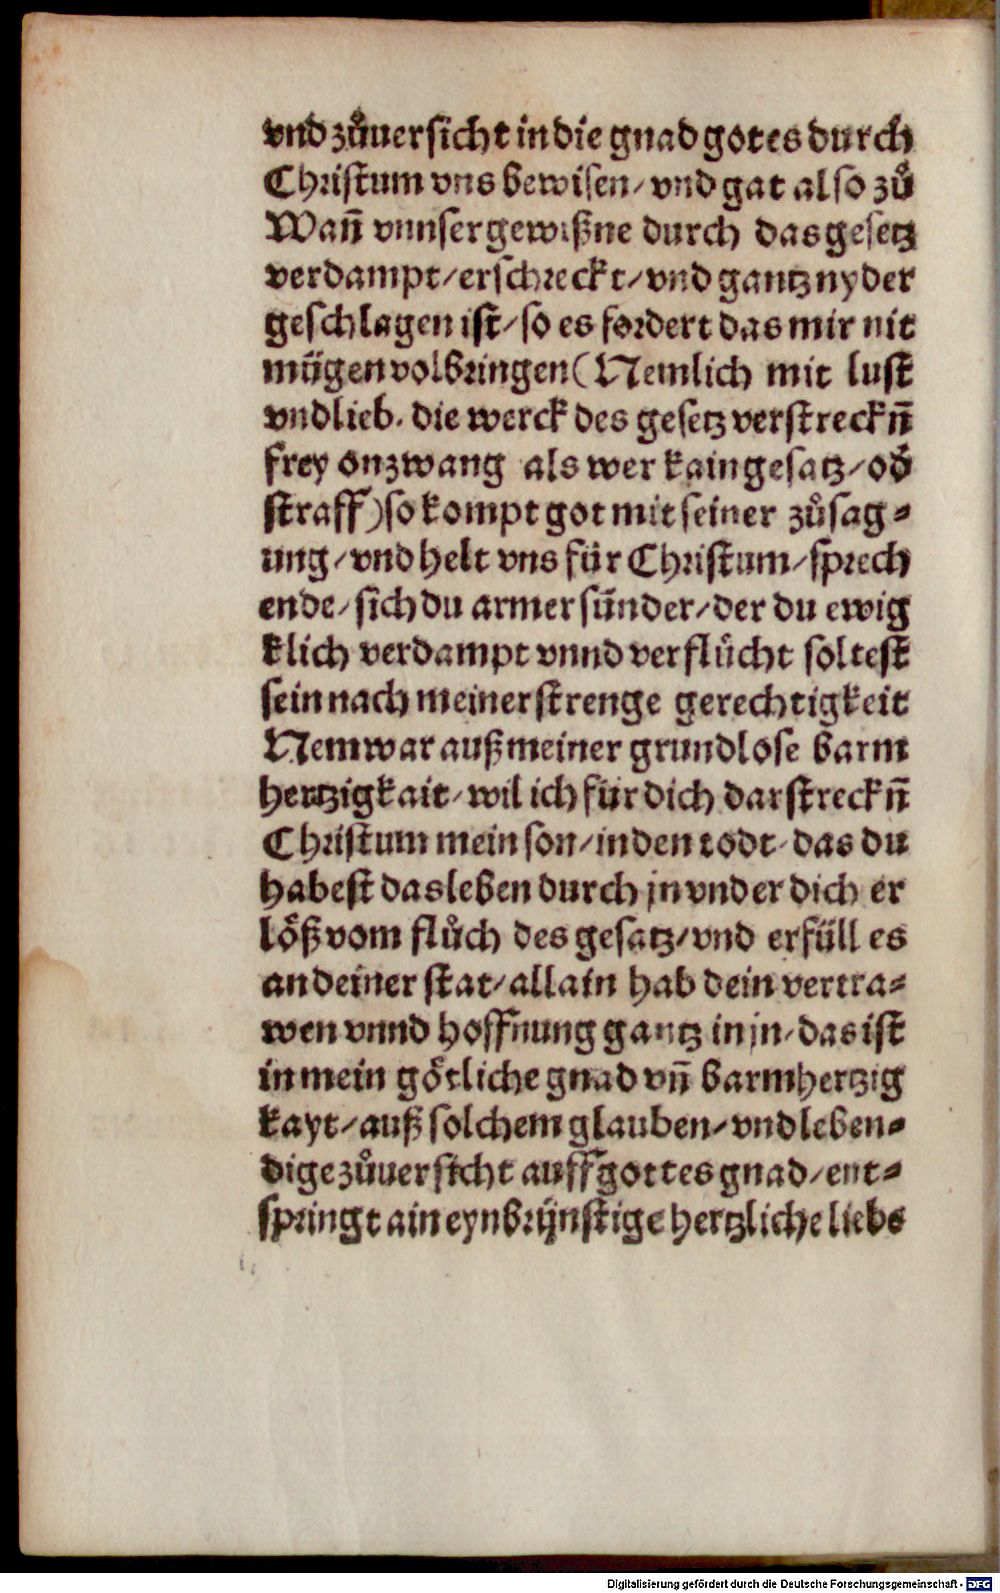 vnd zůuersicht in die gnad gotes durch
Christum vns bewisen/ vnd gat also zů
Wañ vnnser gewißne durch das gesetz
verdampt/ erschreckt/ vnd gantz nyder
geschlagen ist/ so es fordert das mir nit
mügen volbringen (Nemlich mit lust
vnd lieb. die werck des gesetz verstreckñ
frey onzwang als wer kain gesatz/ od̕
straff) so kompt got mit seiner zůsag⸗
ung/ vnd helt vns für Christum/ sprech
ende/ sich du armer sünder/ der du ewig
klich verdampt vnnd verflůcht soltest
sein nach meiner strenge gerechtigkeit
Nem war auß meiner grundlose barm
hertzigkait/ wil ich für dich darstreckñ
Christum mein son/ in den todt/ das du
habest das leben durch jn vnd er dich er
lößvom flůch des gesatz/ vnd erfüll es
an deiner stat/ allain hab dein vertra⸗
wen vnnd hoffnung gantz in jn/ das ist
in mein götliche gnad vñ barmhertzig
kayt/ auß solchem glauben/ vnd leben⸗
dige zůuersicht auff gottes gnad/ ent⸗
springt ain eynbrijnstige hertzliche liebe
Digitalisierung gefördert durch die Deutsche Forschungsgemeinschaft - DFG